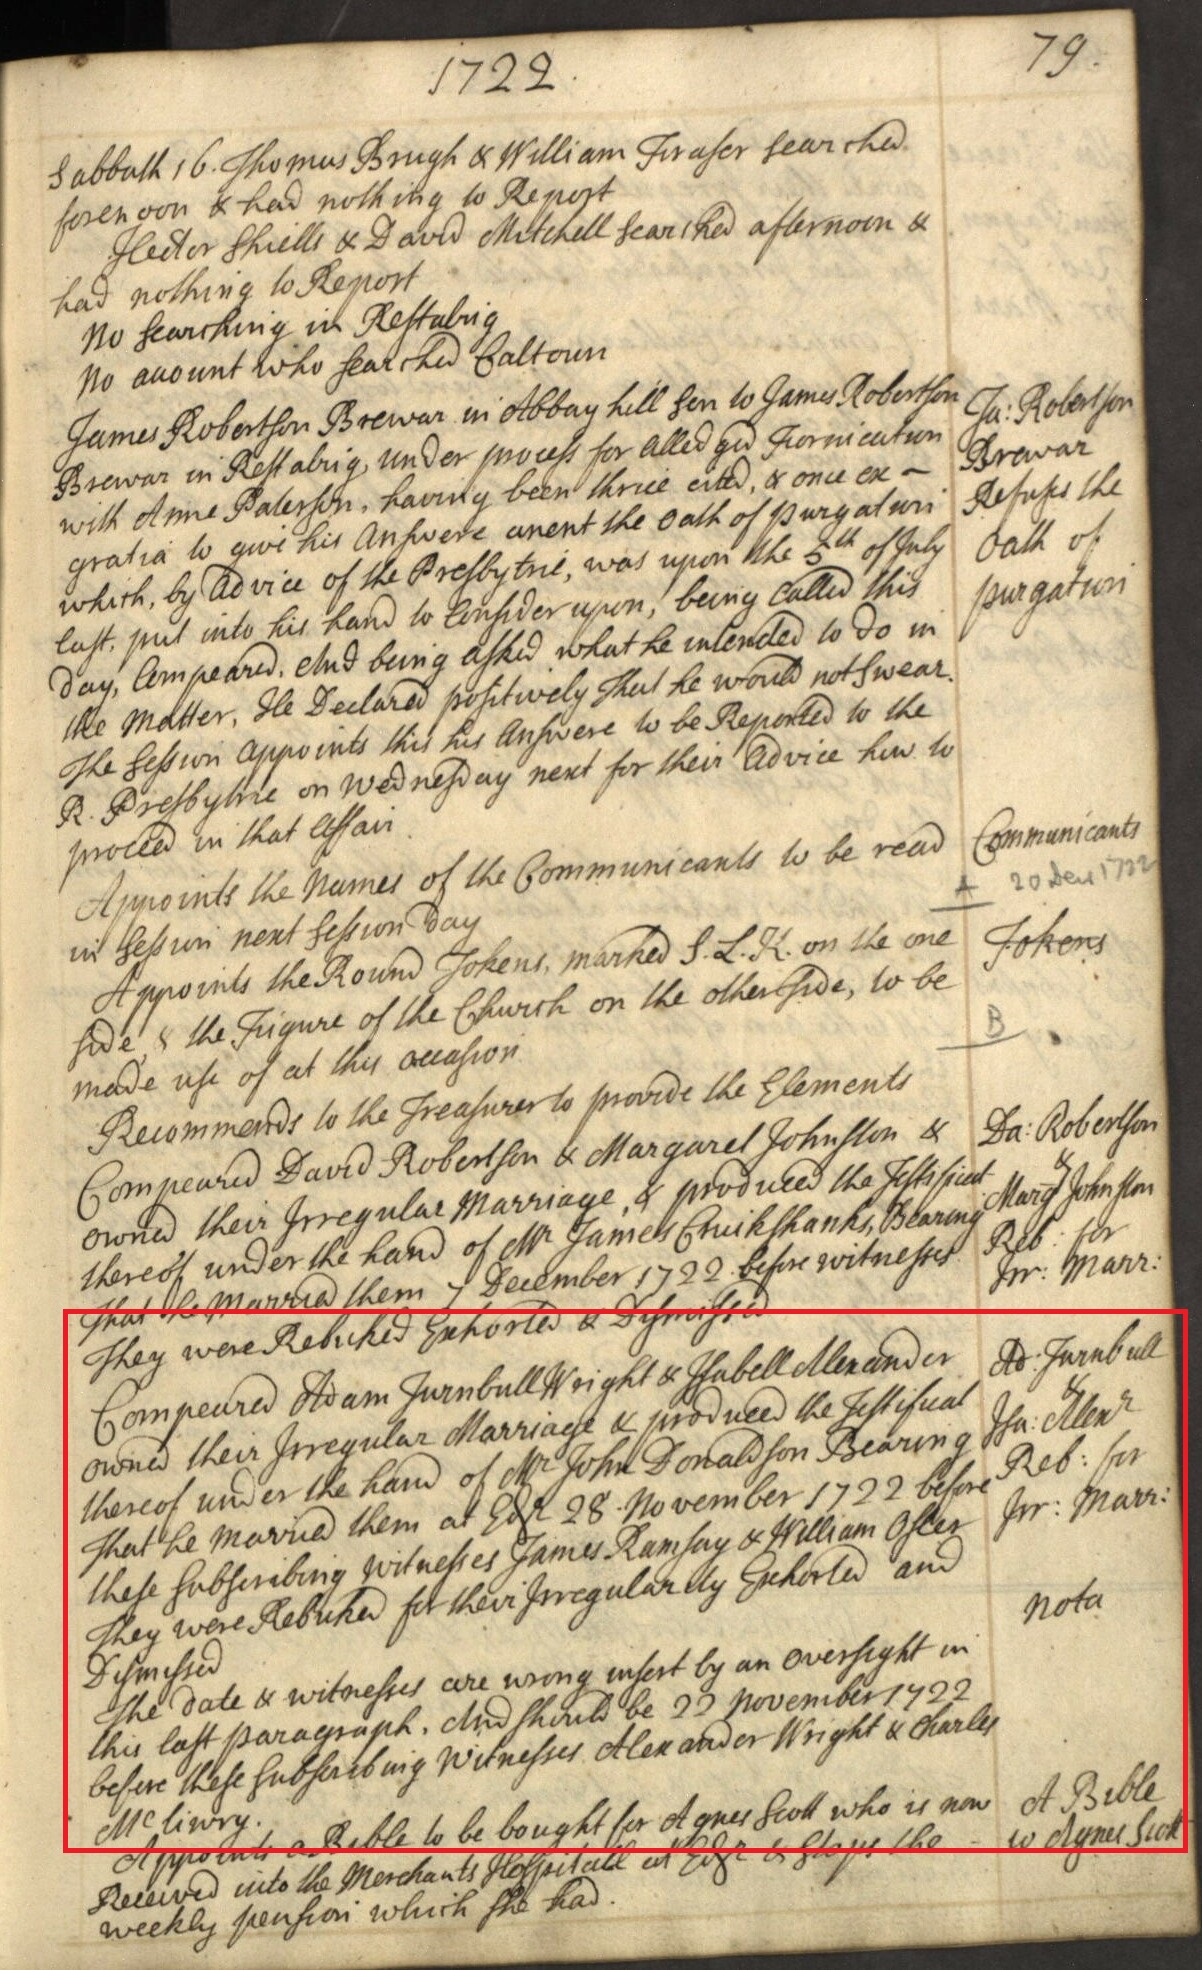 1722.
79.
Sabbath 16. Thomas Brugh & William Fraser searched
forenoon & had nothing to Report
Hector Shiells & David Mitchell searched afternoon &
had nothing to Report
No searching in Restabrig
No account who searched Caltoun
James Robertson Brewar in Abbay hill son to James Robertson
Brewar in Restabrig, under process for alledged Fornication
with Anne Paterson, having been thrice cited, & once ex-
gratia to give his Answere anent the Oath of purgation
which, by advice of the Presbytrie, was upon the 5th of July
last, put into his hand to Consider upon, being Called this
day, Compeared. And being asked what he intended to do in
the matter, He Declared positively that he would not Swear.
The Session Appoints this his Answere to be Reported to the
R. Presbytrie on Wednesday next for their Advice how to
proceed in that Affair.
Ja: Robertson
Brewar
Refuses the
Oath of
purgation
Appoints the Names of the Communicants to be read
in Session next Session day
Communicants
A 20 Decr 1722
Appoints the Round Tokens, marked S. L. K. on the one
side, & the Figure of the Church on the other side, to be
made use of at this occasion
Tokens
B
Recommends to the Treasurer to provide the Elements
Compeared David Robertson & Margaret Johnston &
owned their Irregular Marriage, & produced the Testificat
thereof under the hand of Mr James Cruikshanks, Bearing
That he Married them 7 December 1722 before witnesses
They were Rebuked Exhorted & Dismissed
Da: Robertson
&
Margt Johnston
Reb: for
Irr: Marr:
Compeared Adam Turnbull Wright & Isabell Alexander
owned their Irregular Marriage & produced the Testificat
thereof under the hand of Mr John Donaldson Bearing
That he married them at Edr 28 November 1722 before
these subscribing witnesses James Ramsay & William Osler
They were Rebuked for their Irregularity Exhorted and
Dismissed
Ad: Turnbull
&
Isa: Alexr
Reb: for
Irr: Marr:
The date & witnesses are wrong insert by an oversight in
this last paragraph. And should be 22 November 1722
before these subscribing Witnesses Alexander Wright & Charles
Mcliwry.
nota
Appoints a Bible to be bought for Agnes Scott who is now
Received into the Merchants Hospitall at Edr & stops the -
weekly pension which she had.
A Bible
to Agnes Scott